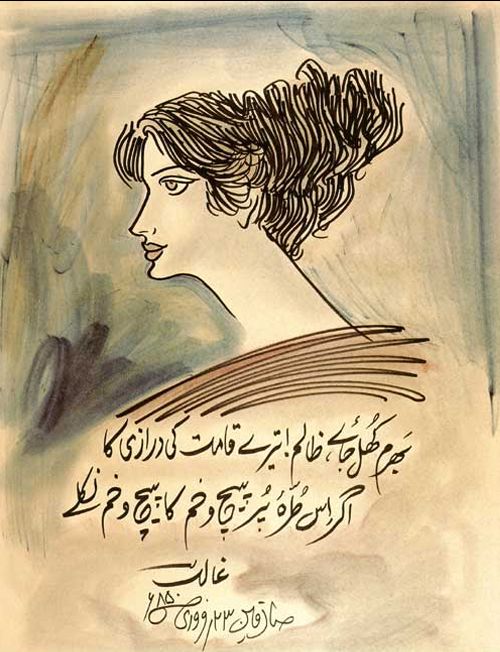 بھرم کھل جائے ظالم! تیرے قامت کی درازی کا
اگر اِس طُرّۂ پُر پیچ و خم کا پیچ و خم نکلے
غالب
صادقین ۲۳ فروری